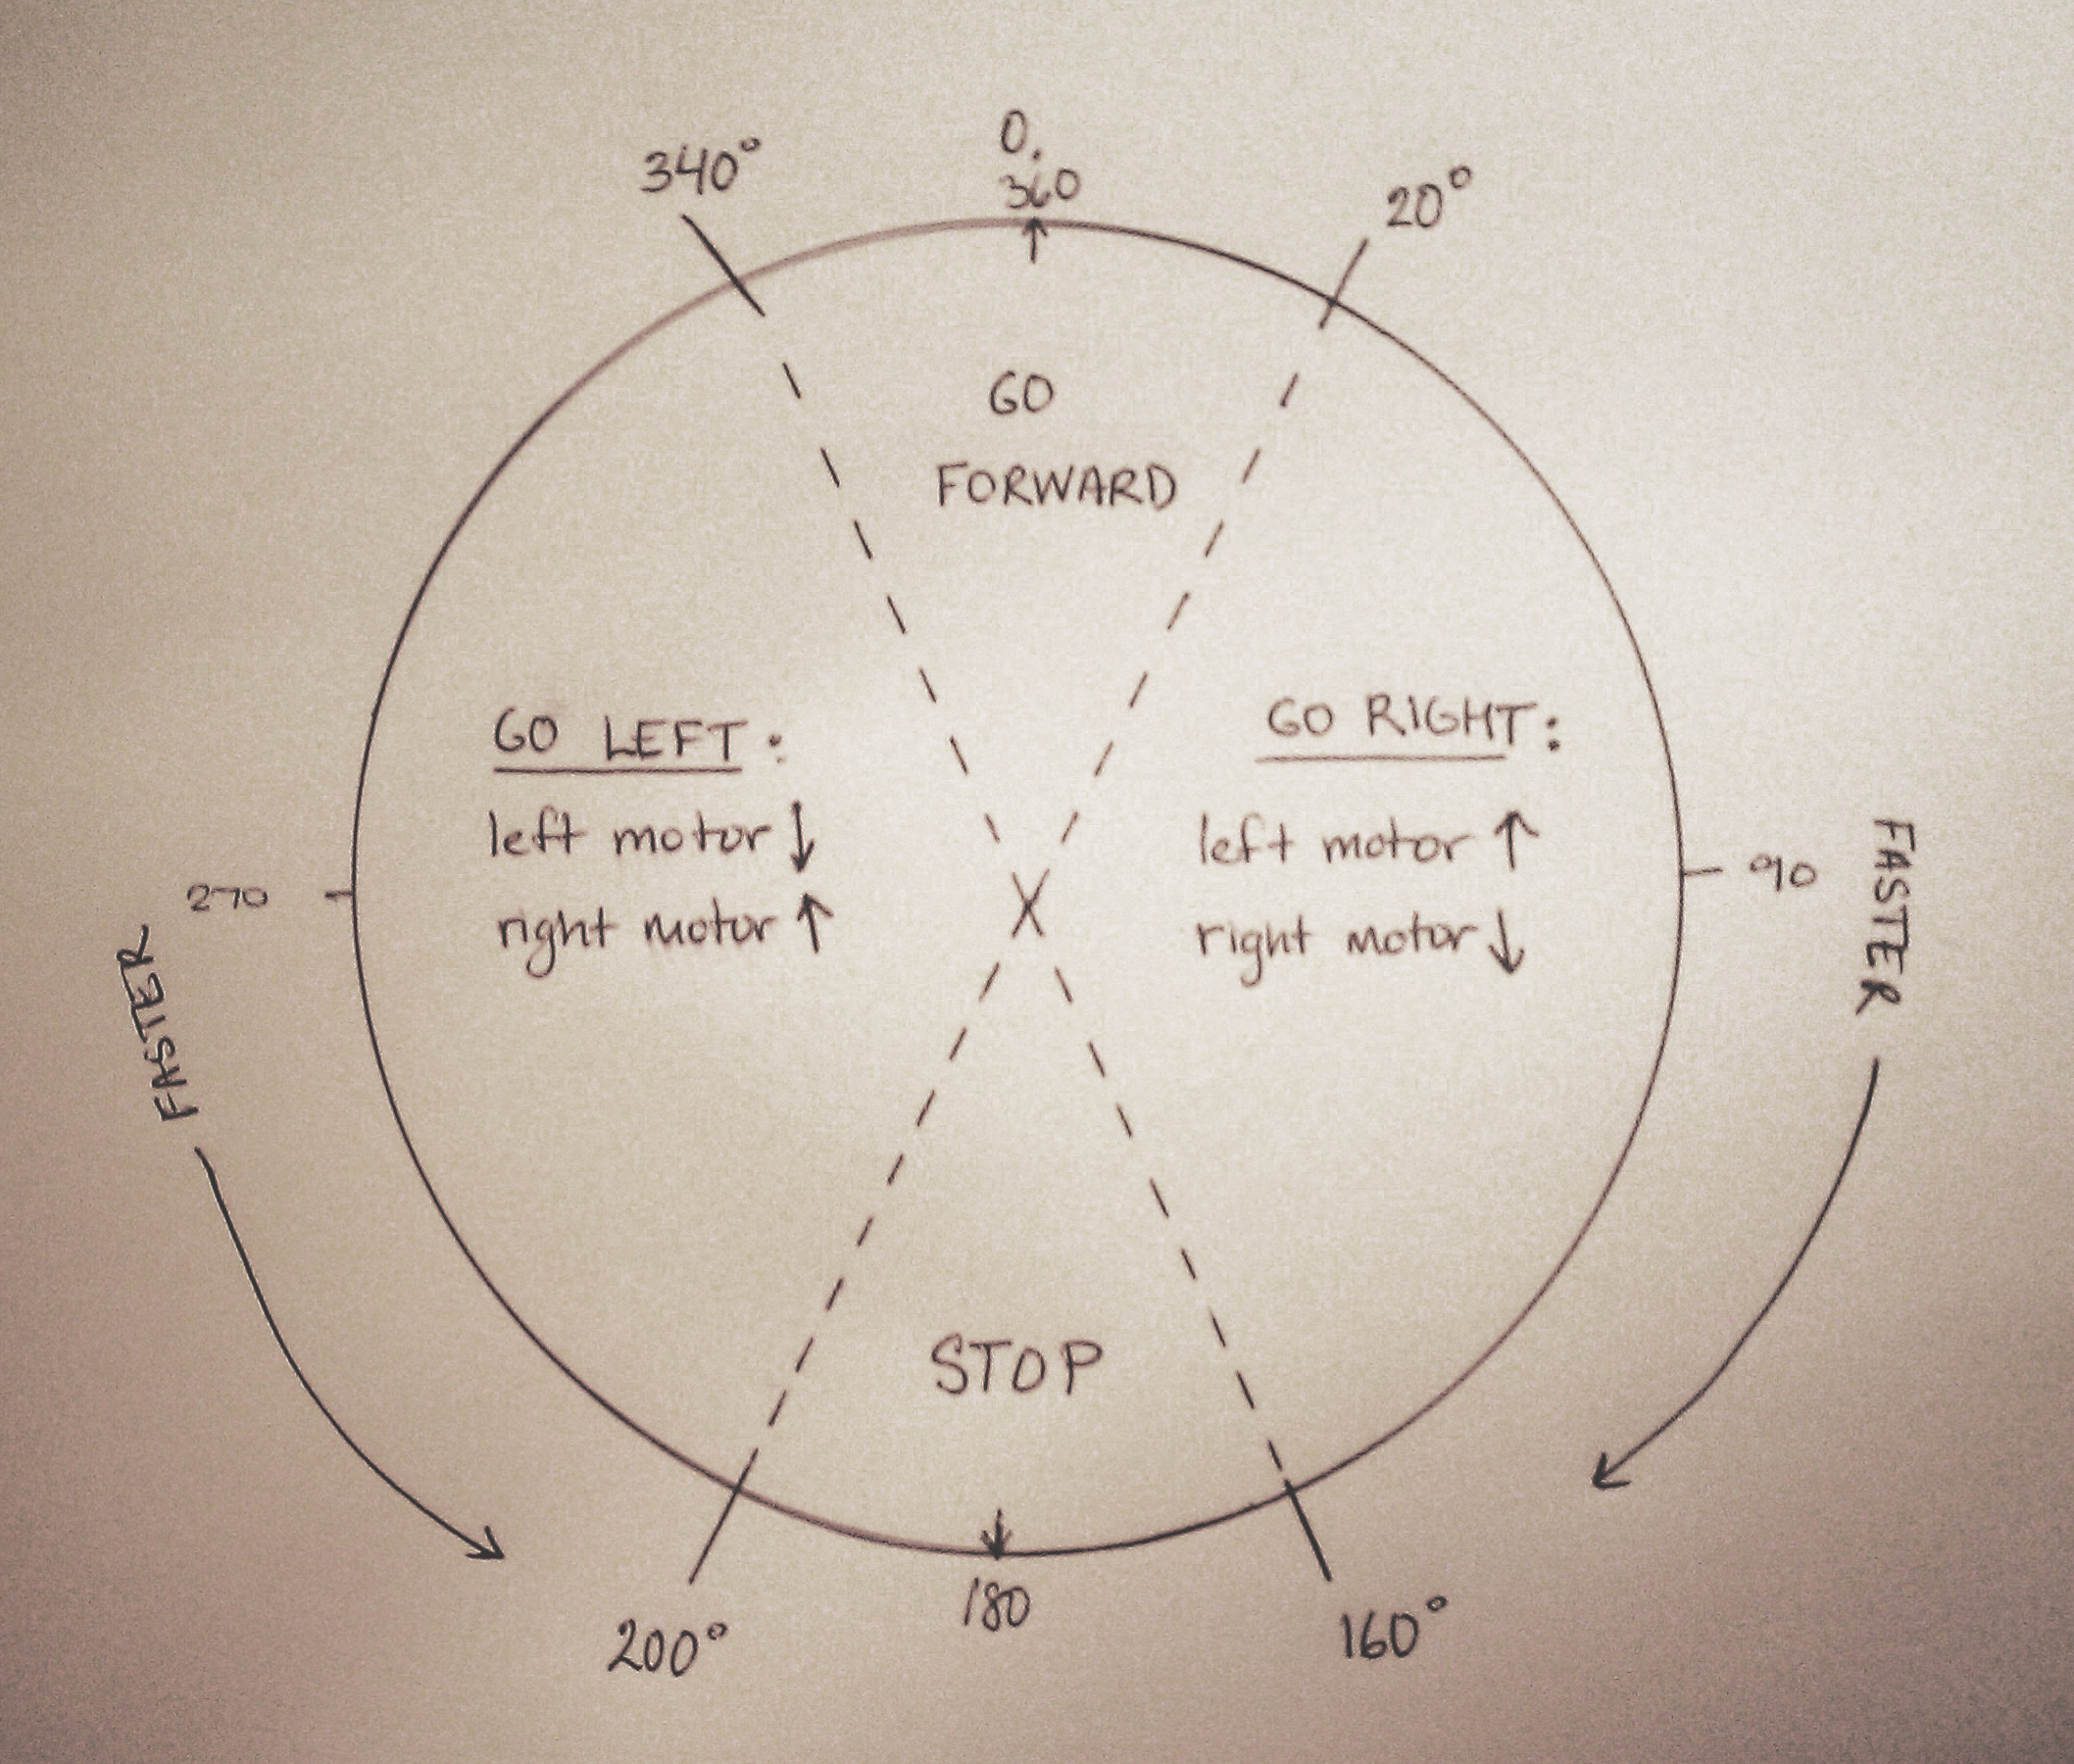 340°
0,
360
20°
GO
FORWARD
GO LEFT:
left motor ↓
right motor ↑
GO RIGHT:
left motor ↑
right motor ↓
270
90
FASTER
FASTER
STOP
180
200°
160°